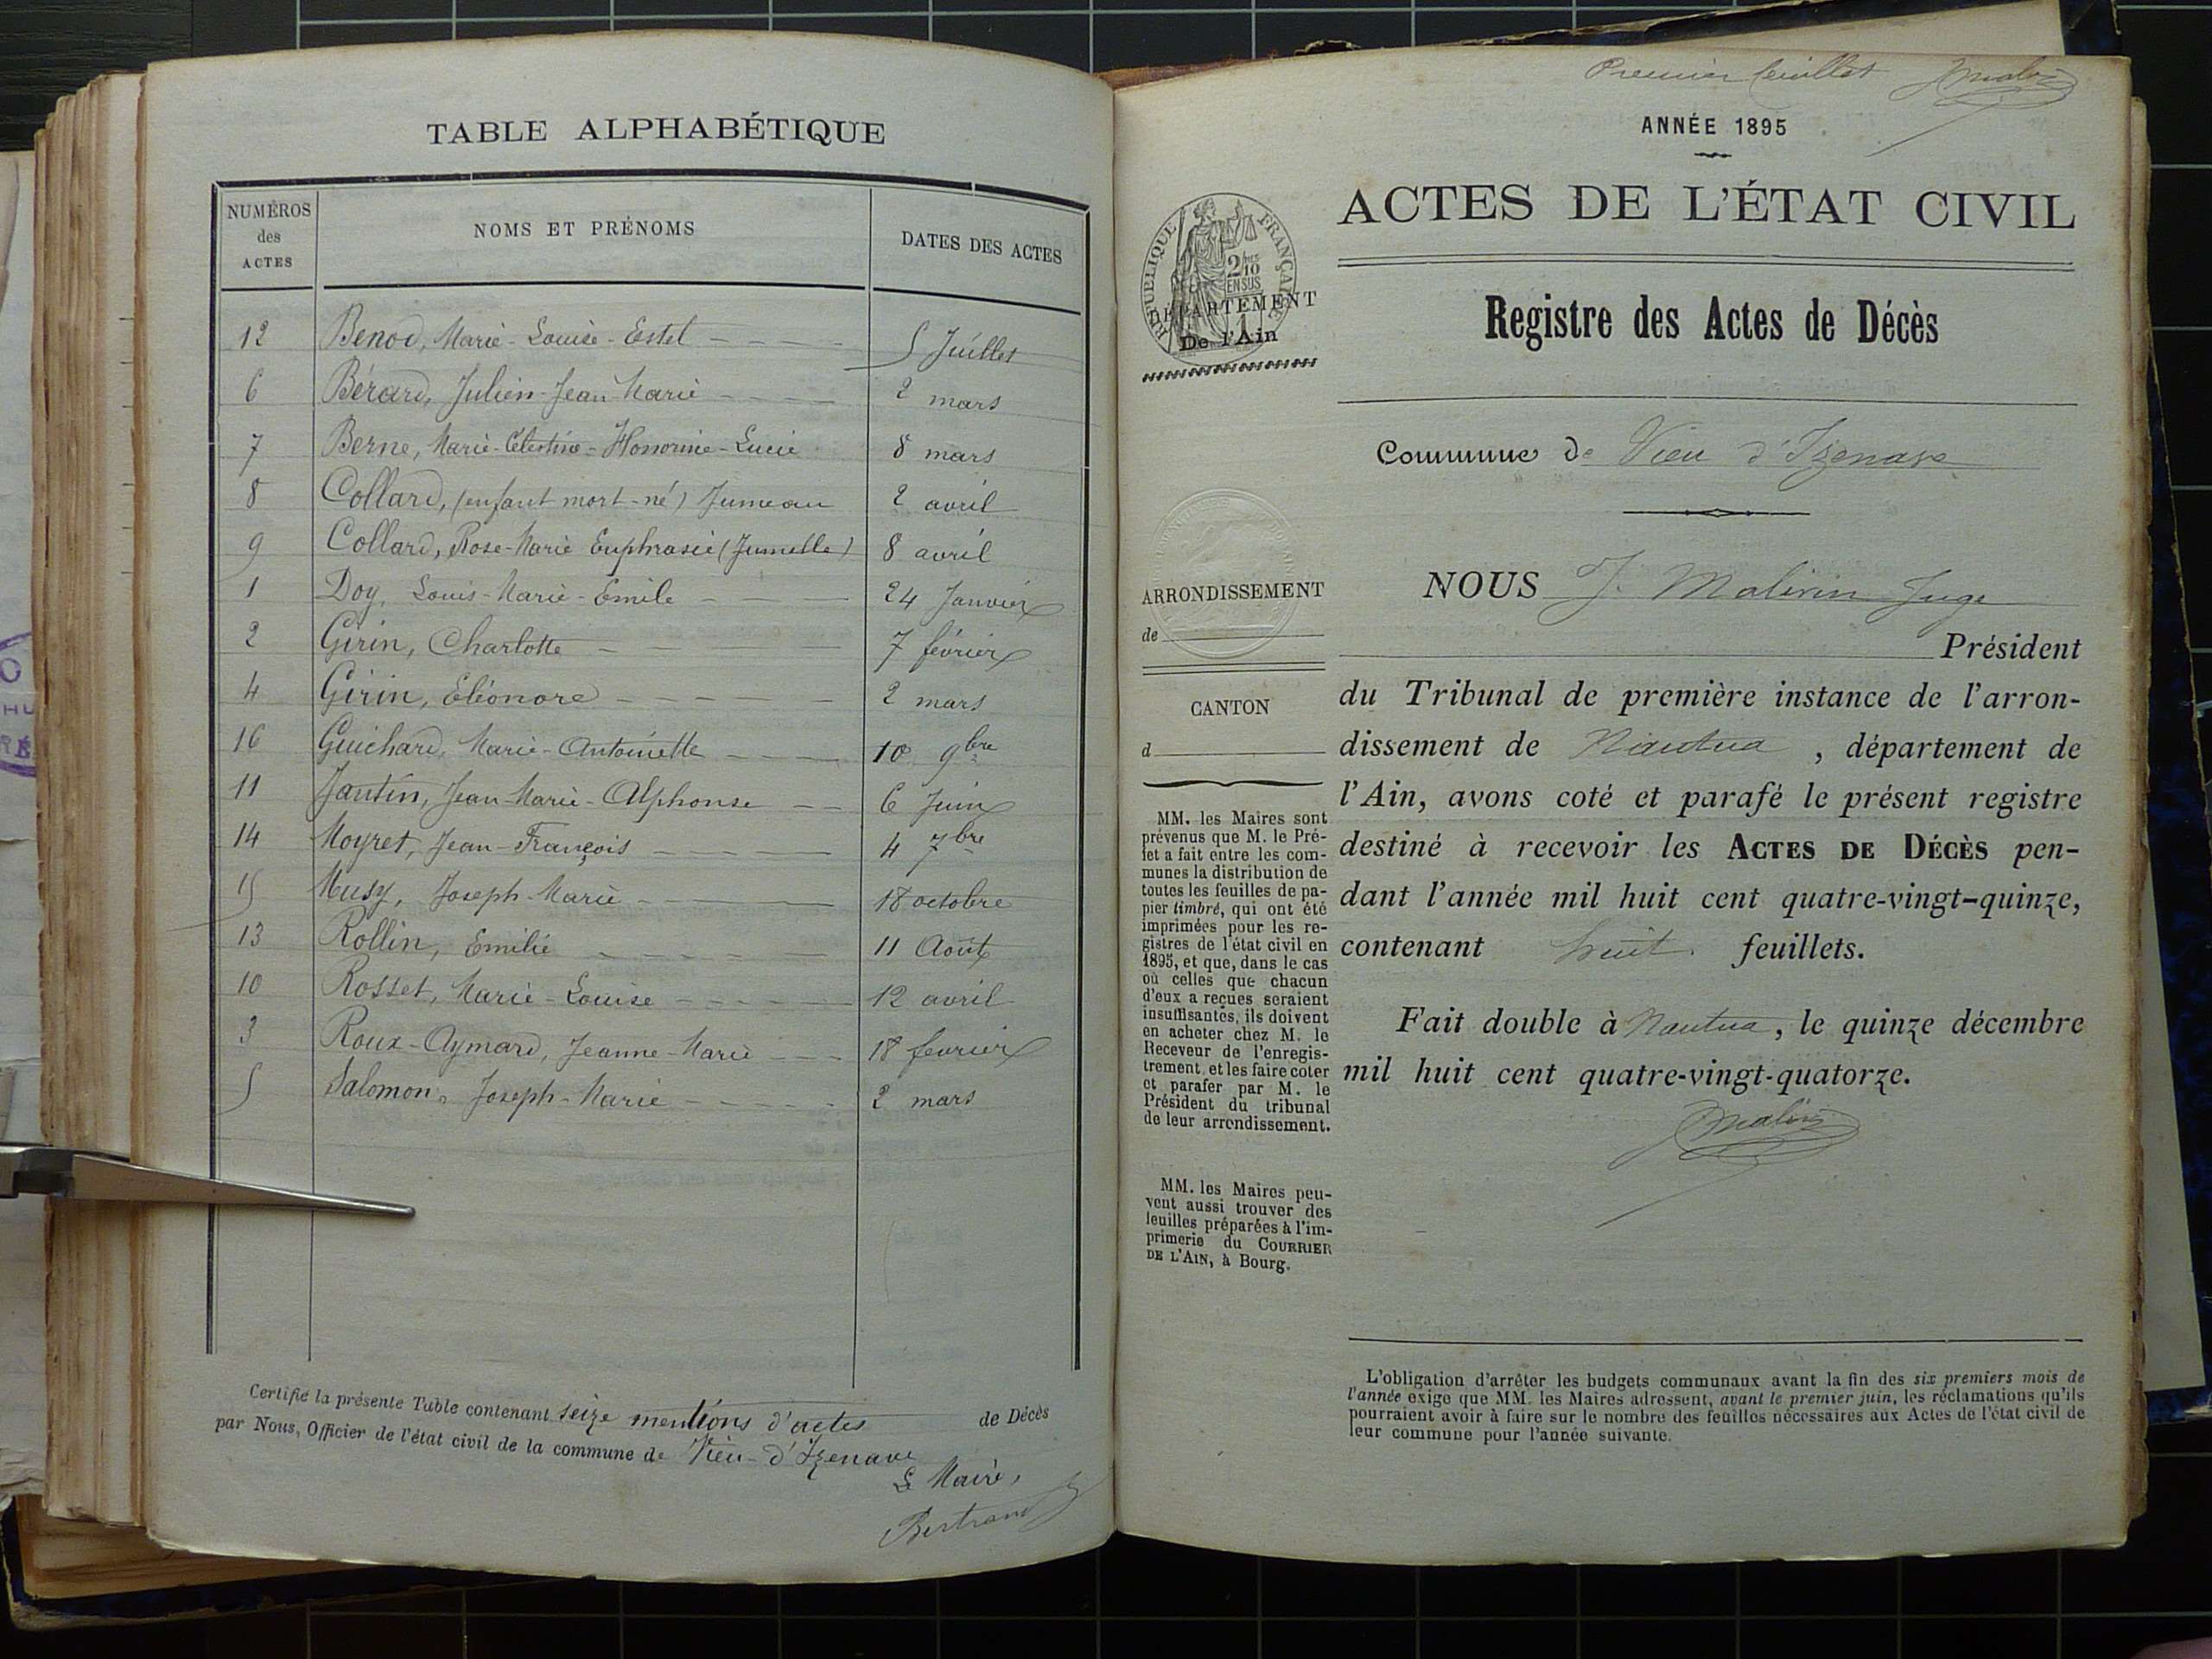 TABLE ALPHABÉTIQUE
NUMÉROS des ACTES
NOMS ET PRÉNOMS
DATES DES ACTES
12 Benod, Marie-Louise-Estel 5 Juillet
6 Bérard, Julien-Jean-Marie 2 mars
7 Berne, Marie-Célestine-Honorine-Lucie 8 mars
8 Collard, (enfant mort-né) Jumeau 2 avril
9 Collard, Rose-Marie Euphrasie (Jumelle) 8 avril
1 Doy, Louis-Marie-Emile 24 Janvier
2 Girin, Charlotte 7 février
4 Girin, Eléonore 2 mars
16 Guichard, Marie-Antoinette 10 9bre
11 Jantin, Jean-Marie-Alphonse 6 Juin
14 Moyret, Jean-François 4 7bre
15 Musy, Joseph-Marie 18 octobre
13 Rollin, Emilie 11 Août
10 Rosset, Marie-Louise 12 avril
3 Roux-Aymard, Jeanne-Marie 18 fevrier
5 Salomon, Joseph-Marie 2 mars
Certifié la présente Table contenant seize mentions d'actes de Décès
par Nous, Officier de l'état civil de la commune de Vieu-d'Izenave
Le Maire,
Bertrand
Premier feuillet Jmalvin
ANNÉE 1895
ACTES DE L'ÉTAT CIVIL
RÉPUBLIQUE FRANÇAISE
2/10 EN SUS
DÉPARTEMENT
De l'Ain
Registre des Actes de Décès
Commune de Vieu d'Izenave
ARRONDISSEMENT
de
CANTON
d
MM. les Maires sont
prévenus que M. le Pré-
fet a fait entre les com-
munes la distribution de
toutes les feuilles de pa-
pier timbré, qui ont été
imprimées pour les re-
gistres de l'état civil en
1895, et que, dans le cas
où celles que chacun
d'eux a reçues seraient
insuffisantes, ils doivent
en acheter chez M. le
Receveur de l'enregis-
trement et les faire coter
et parafer par M. le
Président du tribunal
de leur arrondissement.
MM. les Maires peu-
vent aussi trouver des
feuilles préparées à l'im-
primerie du COURRIER
DE L'AIN, à Bourg.
NOUS J. Malvin Juge
Président
du Tribunal de première instance de l'arron-
dissement de Nantua, département de
l'Ain, avons coté et parafé le présent registre
destiné à recevoir les ACTES DE DÉCÈS pen-
dant l'année mil huit cent quatre-vingt-quinze,
contenant huit feuillets.
Fait double à Nantua, le quinze décembre
mil huit cent quatre-vingt-quatorze.
Jmalvin
L'obligation d'arrêter les budgets communaux avant la fin des six premiers mois de
l'année exige que MM. les Maires adressent, avant le premier juin, les réclamations qu'ils
pourraient avoir à faire sur le nombre des feuilles nécessaires aux Actes de l'état civil de
leur commune pour l'année suivante.